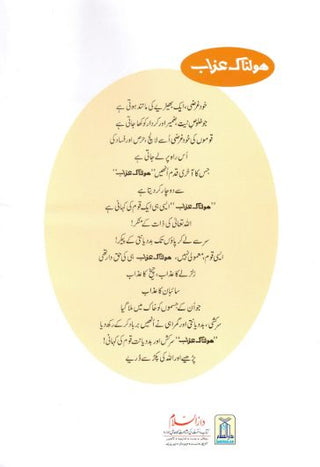 ہولناک عذاب
خود غرضی، ایک بھیڑیے کی مانند ہوتی ہے
جو خلوصِ نیت، ضمیر اور کردار کو کھا جاتی ہے
قوموں کی خود غرضی اُسے لالچ، حرص اور فساد کی
اُس راہ پر لے جاتی ہے
جس کا آخری قدم اُنھیں "ہولناک عذاب"
سے دوچار کر دیتا ہے
"ہولناک عذاب" ایسی ہی ایک قوم کی کہانی ہے
اللہ تعالیٰ کی ذات کے منکر!
سر سے لے کر پاؤں تک بددیانتی کے پیکر!
ایسی قوم، معمولی نہیں، ہولناک عذاب ہی کی حق دار تھی
زلزلے کا عذاب، چیخ کا عذاب
سائبان کا عذاب
جو اُن کے جسموں کو خاک میں ملا گیا
سرکشی، بددیانتی اور گمراہی نے اُنھیں برباد کر کے رکھ دیا
"ہولناک عذاب" سرکش اور بددیانت قوم کی کہانی!
پڑھیے اور اللہ کی پکڑ سے ڈریے
دارالسلام